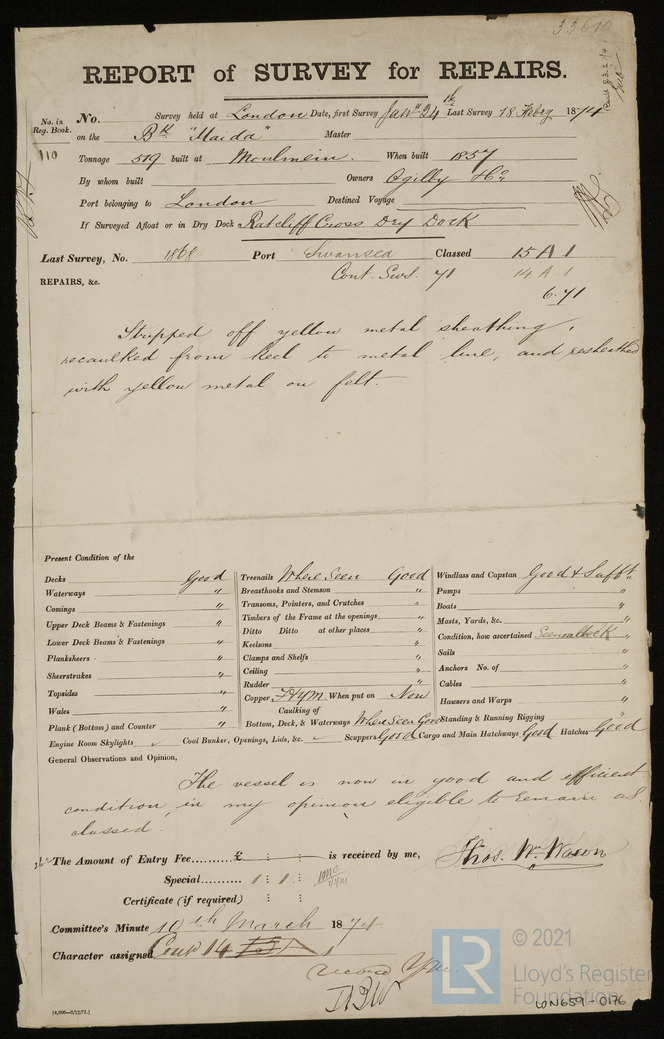 33610
REPORT of SURVEY for REPAIRS.
No. in Reg. Book. No. Survey held at London Date, first Survey Jany 24th Last Survey 18 Febry 1874
110 on the Bk "Maida" Master
Tonnage 519 built at Moulmein. When built 1857
By whom built Owners Ogilby & Co
Port belonging to London Destined Voyage
If Surveyed Afloat or in Dry Dock Ratcliff Cross Dry Dock
Last Survey, No. 1868 Port Swansea Classed 15 A 1
REPAIRS, &c. Cont. Sws. 71 14 A 1
6.71
Stripped off yellow metal sheathing,
recaulked from keel to metal line, and resheathed
with yellow metal on felt.
Present Condition of the
Decks Good
Waterways "
Comings "
Upper Deck Beams & Fastenings "
Lower Deck Beams & Fastenings "
Planksheers "
Sheerstrakes "
Topsides "
Wales "
Plank (Bottom) and Counter "
Treenails Where Seen Good
Breasthooks and Stemson "
Transoms, Pointers, and Crutches "
Timbers of the Frame at the openings "
Ditto Ditto at other places "
Keelsons "
Clamps and Shelfs "
Ceiling "
Rudder "
Copper F & YM When put on Now
Caulking of
Bottom, Deck, & Waterways Where Seen Good
Windlass and Capstan Good & Sufft
Pumps "
Boats "
Masts, Yards, &c. "
Condition, how ascertained "
Sails "
Anchors No. of "
Cables "
Hausers and Warps "
Standing & Running Rigging "
Engine Room Skylights Coal Bunker, Openings, Lids, &c. Scuppers Good Cargo and Main Hatchways Good Hatches Good
General Observations and Opinion,
The vessel is now in good and efficient
condition, in my opinion eligible to remain as
classed.
The Amount of Entry Fee.......... £ : : is received by me, Thos. W. Wawn
Special.......... 1 : 1 :
Certificate (if required) : :
Committee's Minute 10th March 1874
Character assigned Cont 14 A 1
[4,000—9/12/72.]
LR
© 2021
Lloyd's Register
Foundation
LON659-0176